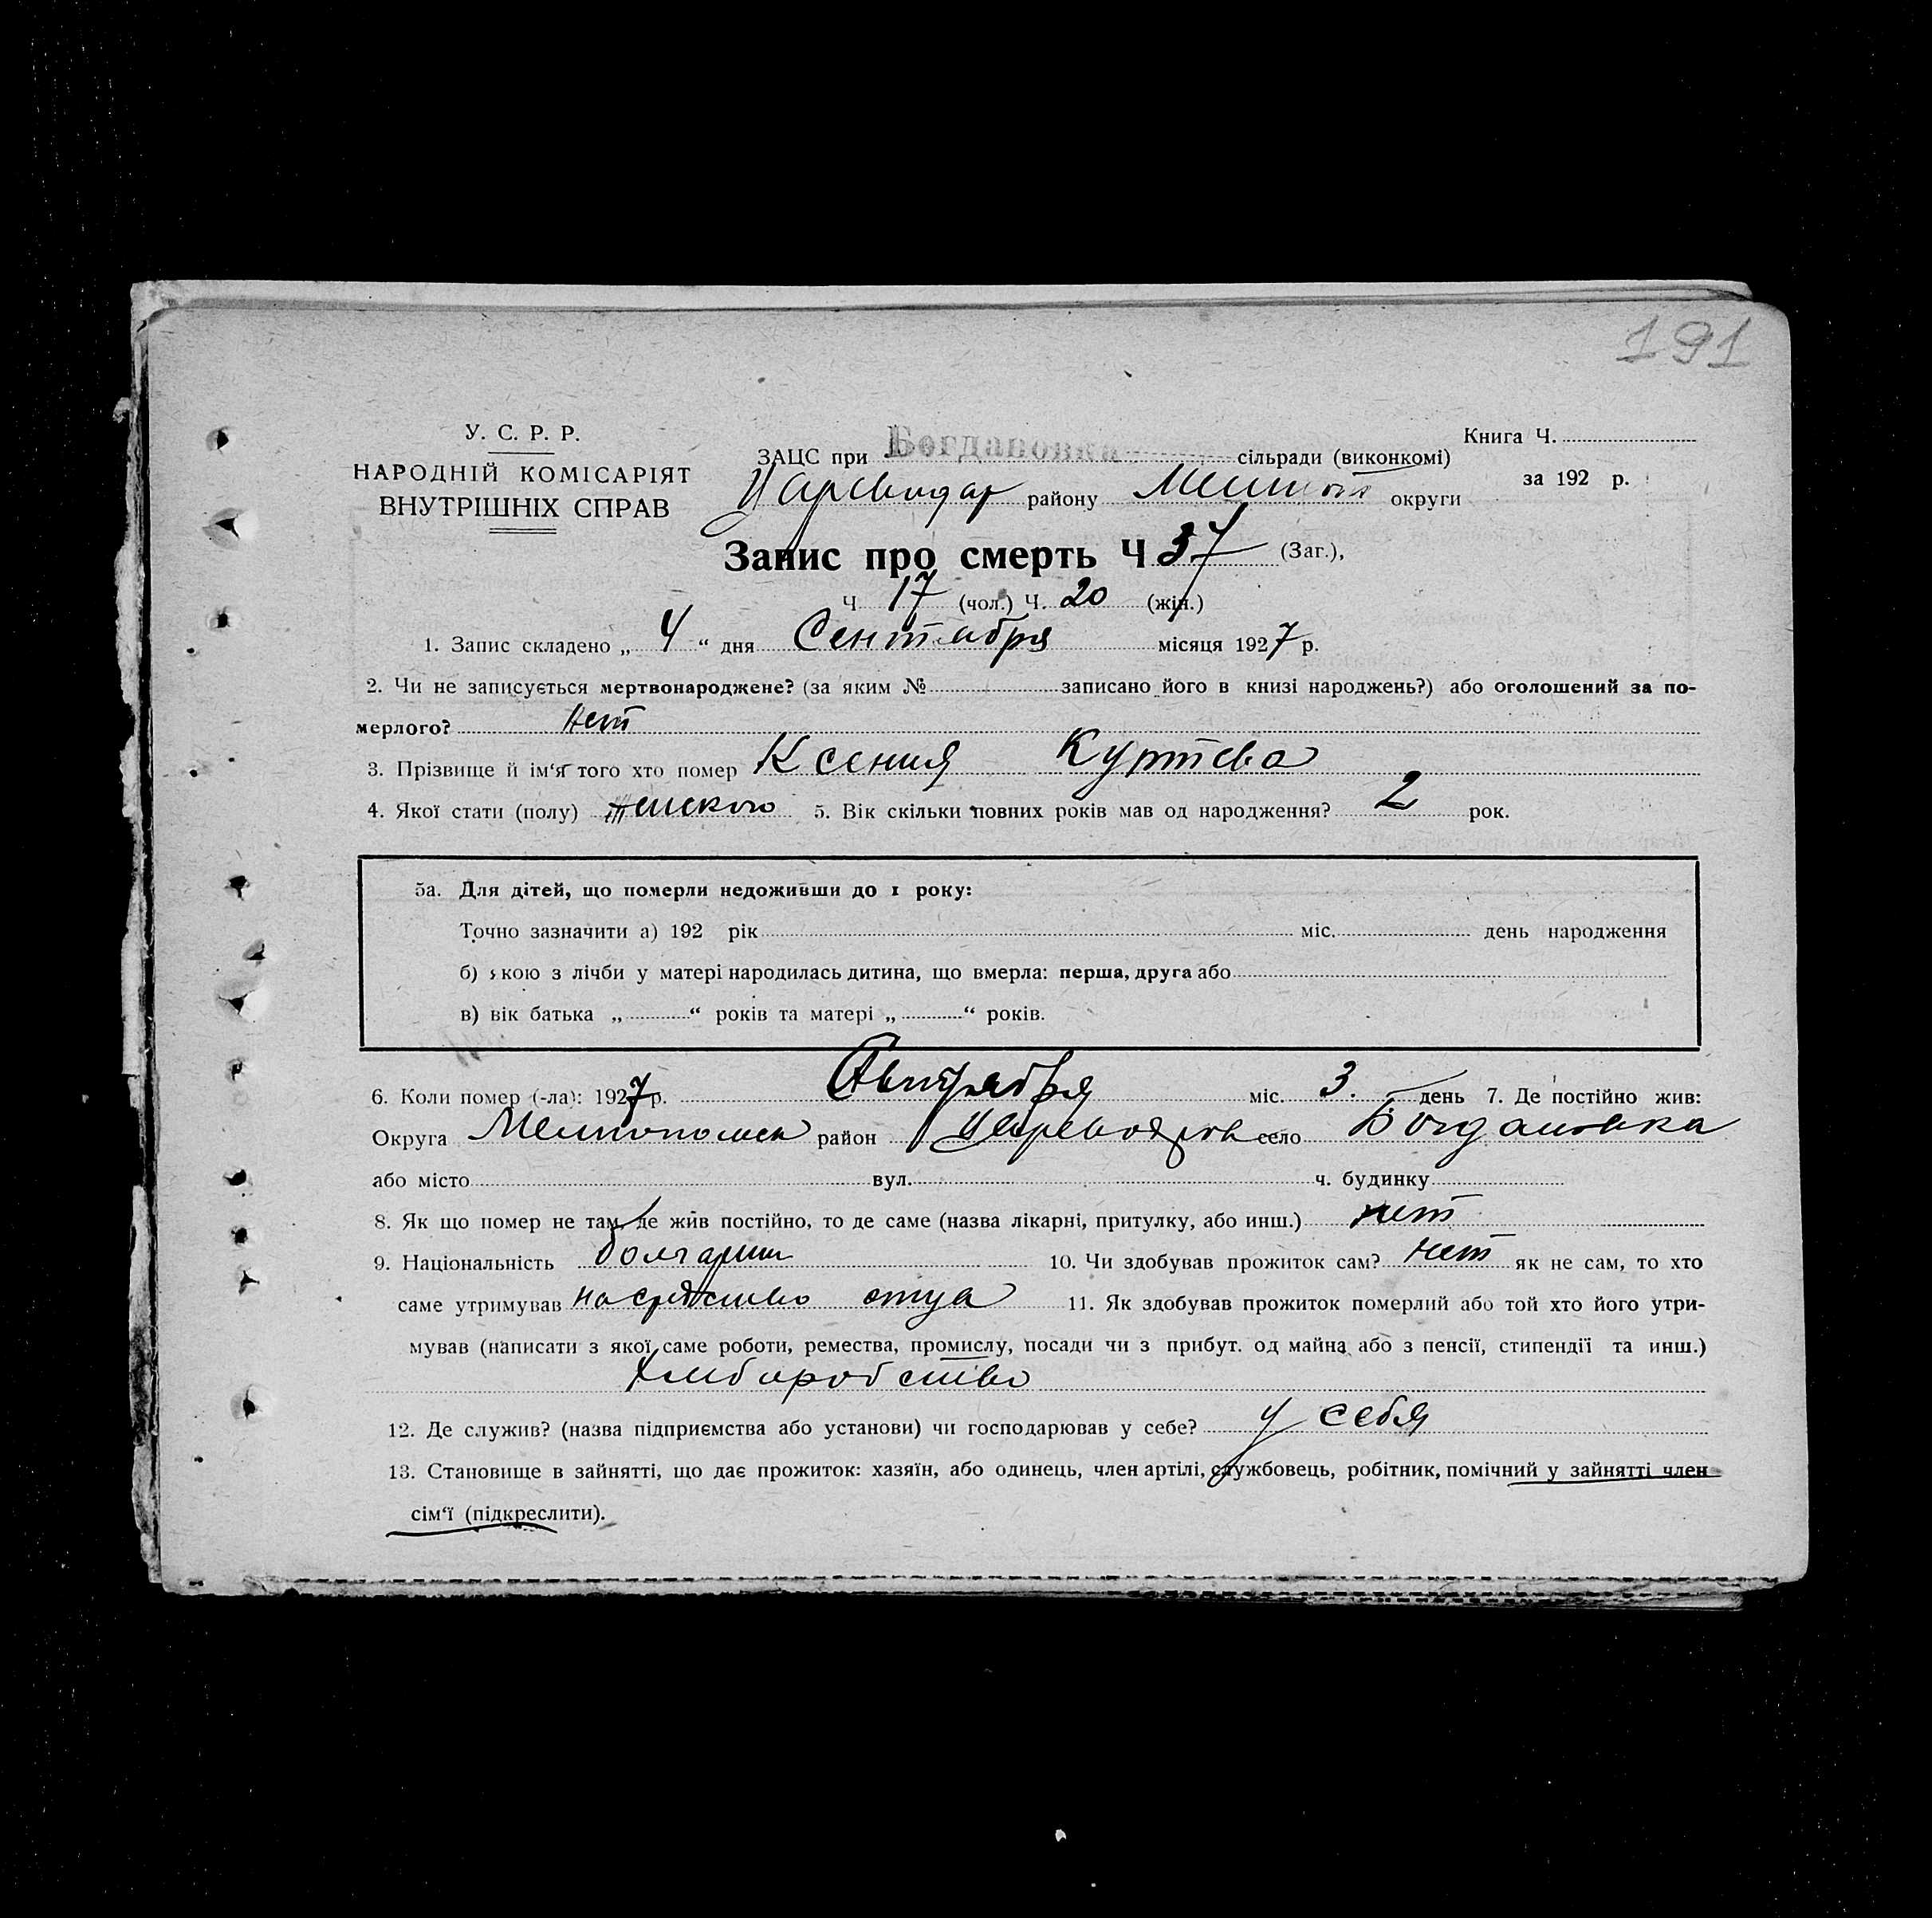 191
У. С. Р. Р.
НАРОДНІЙ КОМІСАРІЯТ
ВНУТРІШНІХ СПРАВ
ЗАЦС при Богдановка сільради (виконкомі)
району округи
Книга Ч.
за 192 р.
Запис про смерть Ч 37 (Заг.),
Ч 17 (чол.) Ч. 20 (жін.)
1. Запис складено „ 4 “ дня Сентября місяця 1927 р.
2. Чи не записується мертвонароджене? (за яким № записано його в книзі народжень?) або оголошений за по-
мерлого? нет
3. Прізвище й ім‘я того хто помер Ксения Куртева
4. Якої стати (полу) женского 5. Вік скільки повних років мав од народження? 2 рок.
5а. Для дітей, що померли недоживши до 1 року:
Точно зазначити а) 192 рік міс. день народження
б) якою з лічби у матері народилась дитина, що вмерла: перша, друга або
в) вік батька „ “ років та матері „ “ років.
6. Коли помер (-ла): 1927 р. міс. 3. день 7. Де постійно жив:
Округа район село Богдановка
або місто вул. ч. будинку
8. Як що помер не там, де жив постійно, то де саме (назва лікарні, притулку, або инш.) нет
9. Національність 10. Чи здобував прожиток сам? нет як не сам, то хто
саме утримував на средство отца 11. Як здобував прожиток померлий або той хто його утри-
мував (написати з якої саме роботи, ремества, промислу, посади чи з прибут. од майна або з пенсії, стипендії та инш.)
12. Де служив? (назва підприємства або установи) чи господарював у себе? у себя
13. Становище в зайнятті, що дає прожиток: хазяїн, або одинець, член артілі, службовець, робітник, помічний у зайнятті член
сім‘ї (підкреслити).